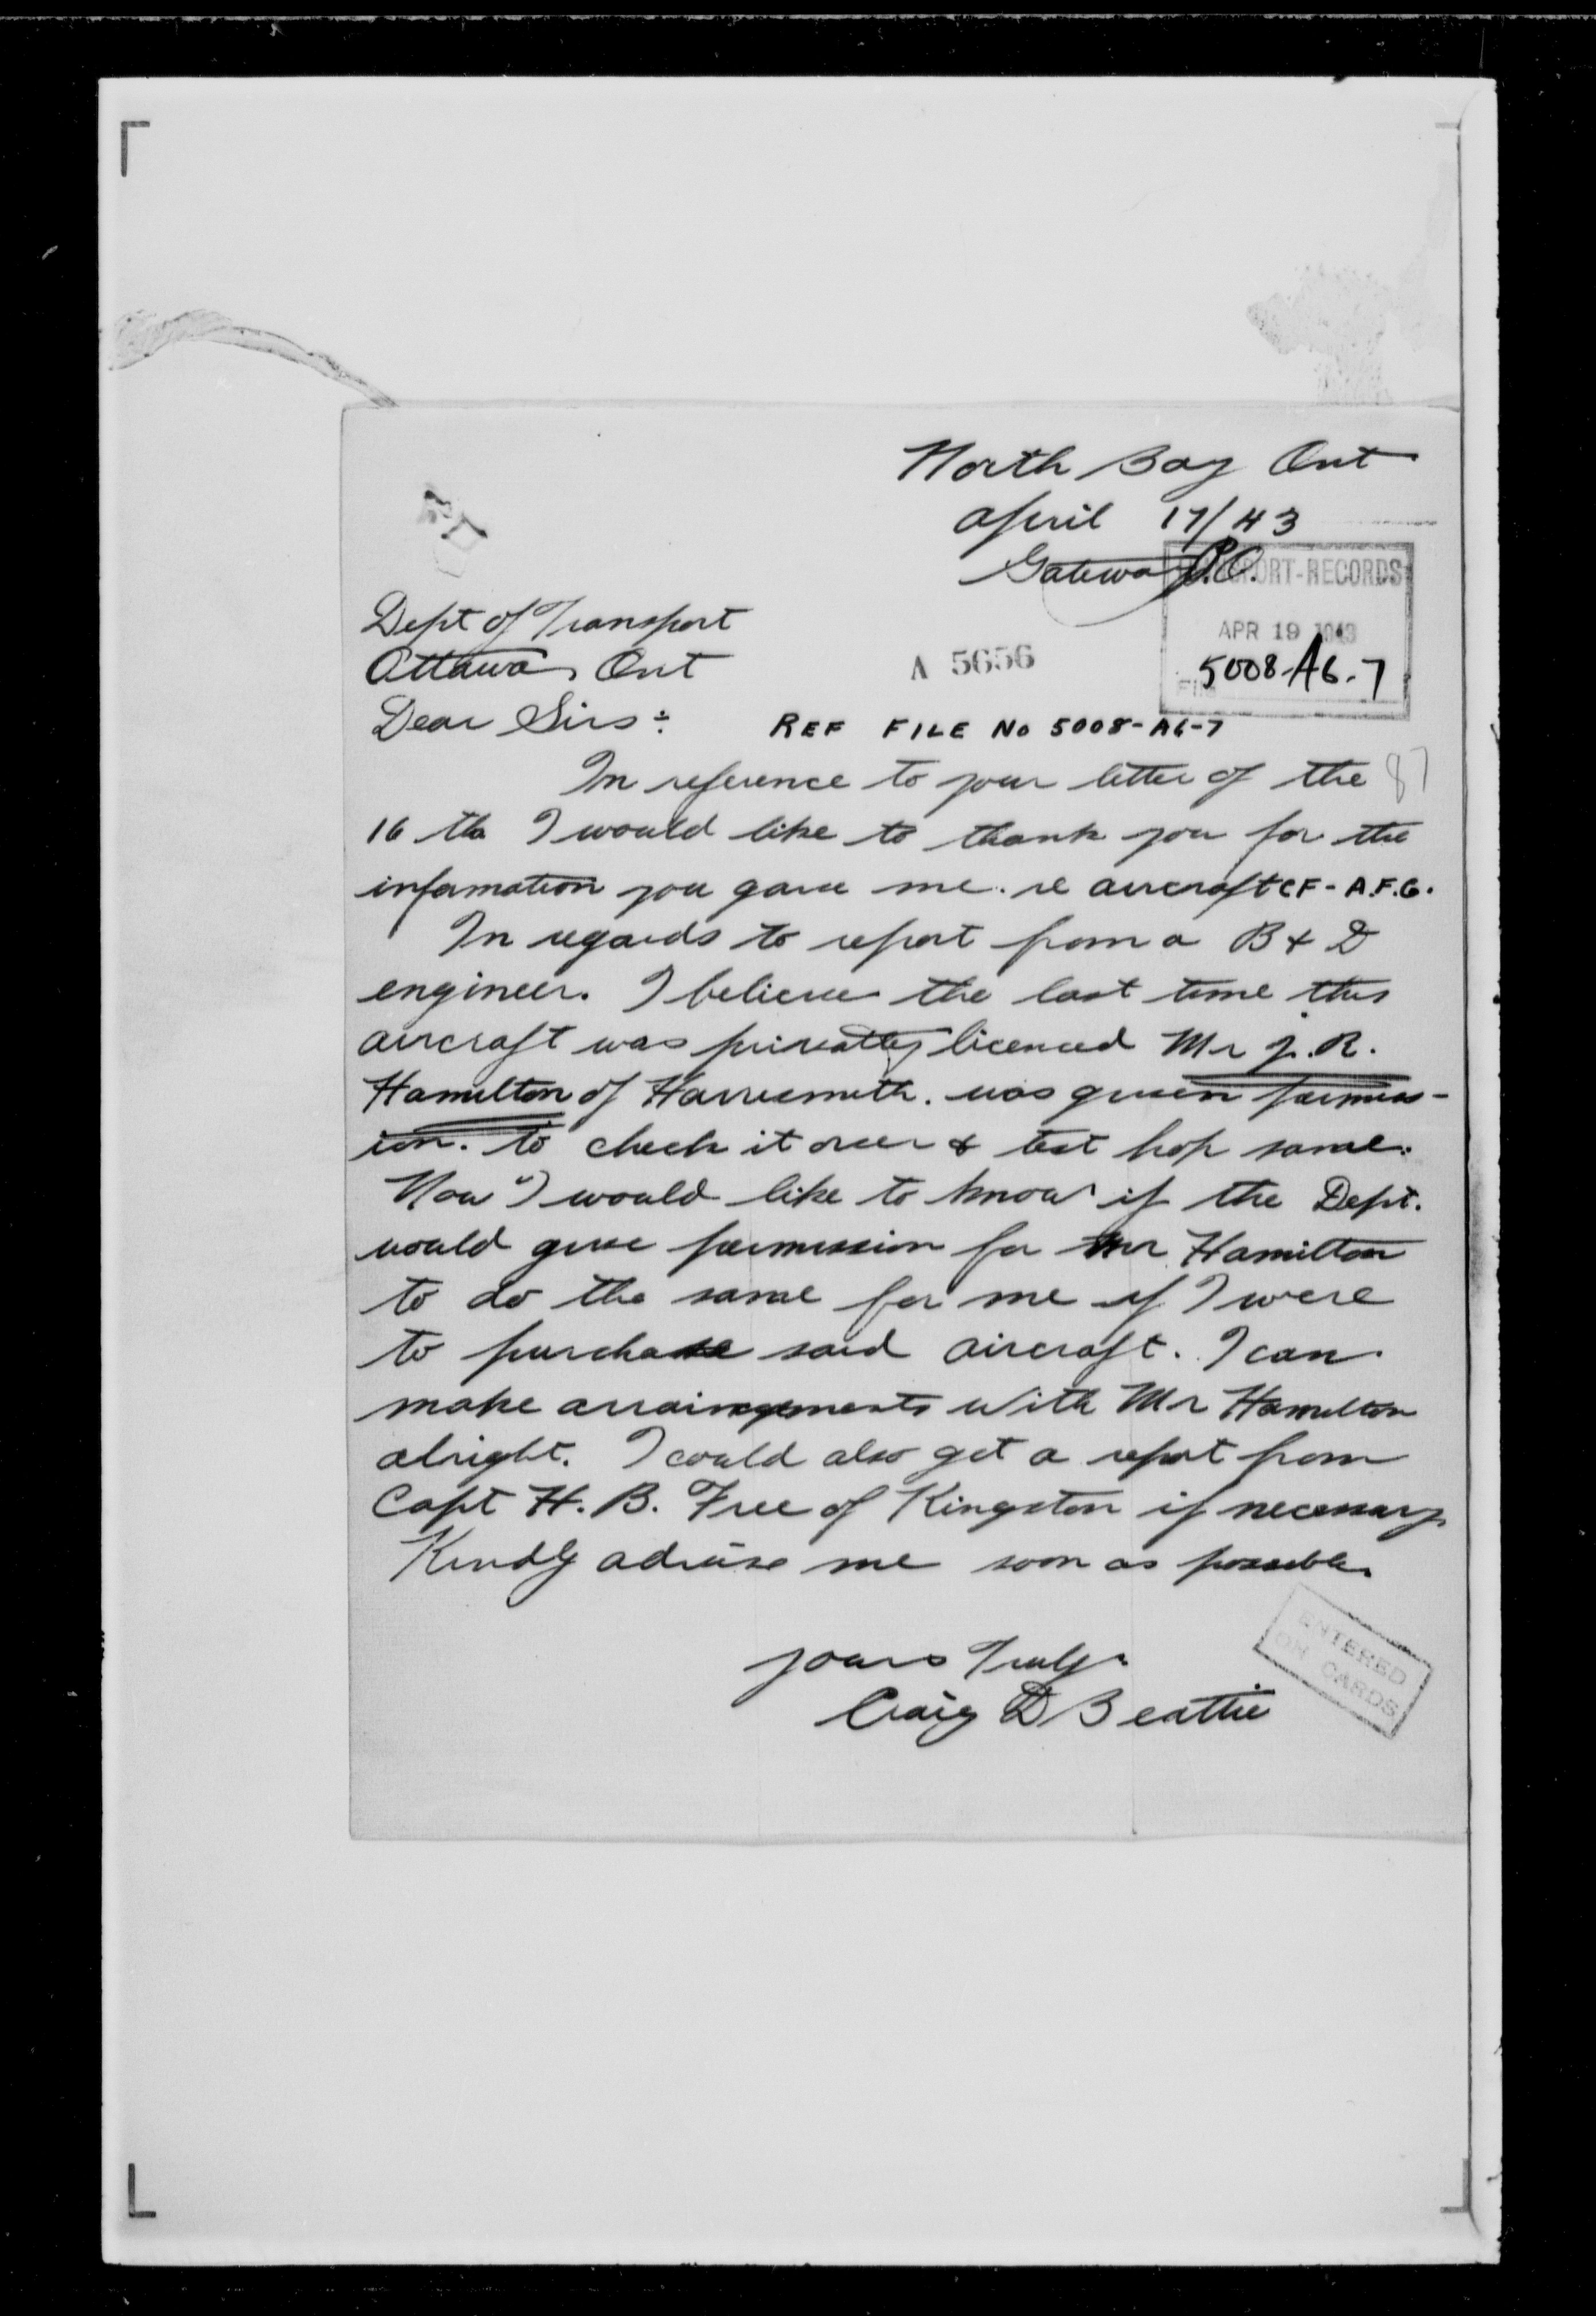 North Bay Ont
April 17/43
Gateway P.O.
PORT-RECORDS
Dept of Transport
APR 19 1943
Ottawa, Ont
A 5656
5008-A6-7
FILE
Dear Sirs:
REF FILE No 5008-A6-7
In reference to your letter of the
87
16 th I would like to thank you for the
infamation you gave me. re aircraft CF-A.F.G.
In regards to report from a B & D
engineer. I believe the last time this
aircraft was privatly licenced Mr J. R.
Hamilton of Harrismith. was given permiss-
ion. to check it over & test hop same.
Now I would like to know if the Dept.
would give permission for Mr Hamilton
to do the same for me if I were
to purchase said aircraft. I can
make arraingements with Mr Hamilton
alright. I could also get a report from
Capt H. B. Free of Kingston if necessary
Kindly advise me soon as possible.
yours Truly
Craig D Beattie
ENTERED
ON CARDS